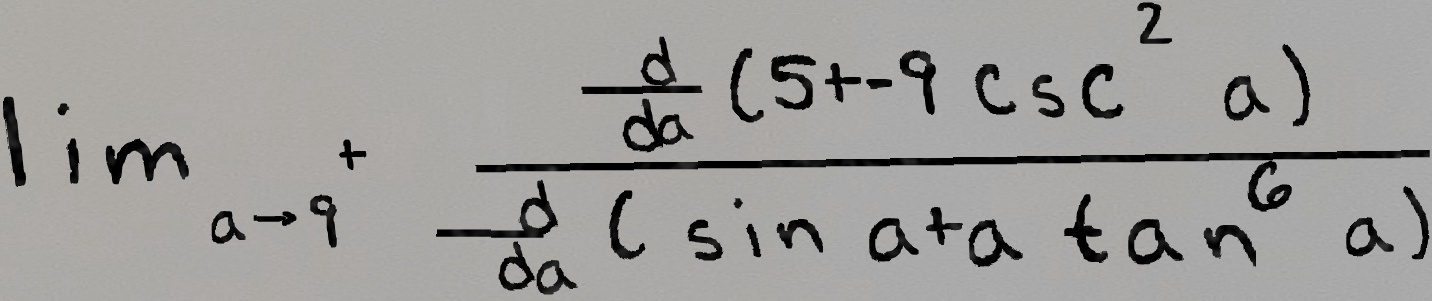 \lim_{a \to 9^+} \frac{\frac{d}{da}(5+-9 \csc^2 a)}{\frac{d}{da}(\sin a+a \tan^6 a)}